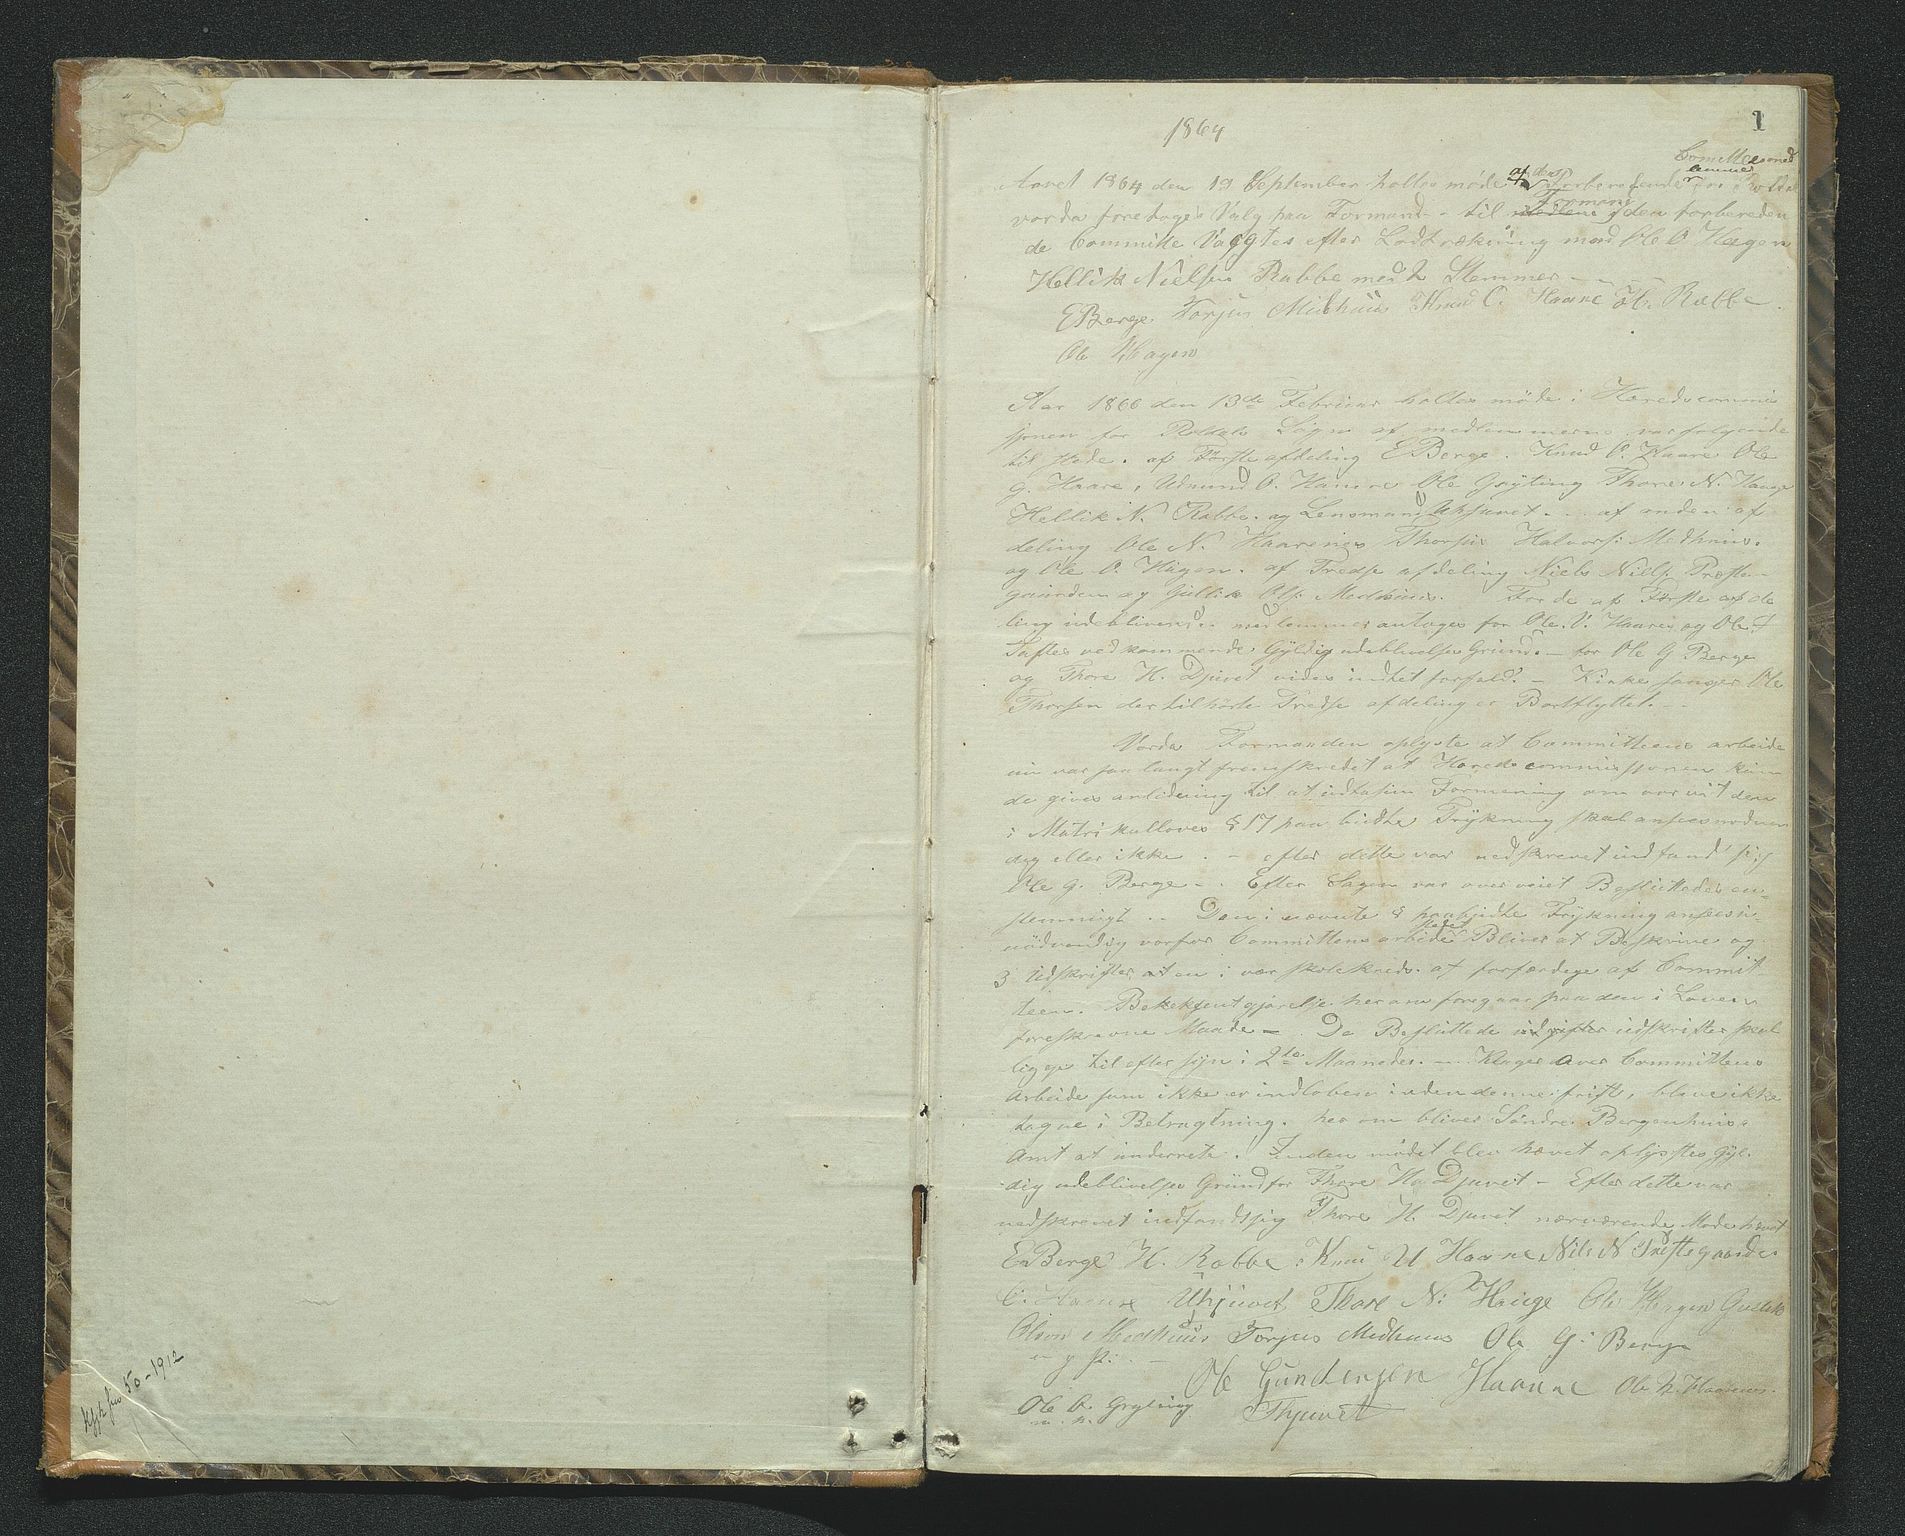 1
1864
Comittesmed
lemmer
Aaret 1864 den 19 September holtes møde af den forberedende i Røldal
Formand
vorda foretoges Valg paa Formand - til medlem i den forbereden
de Committe Valgtes efter Lodtrækning mod Ole O Hagen
Hellik Nielsen Rabbe med 2 Stemmer
EBerge Torjus Midhuus Knud O. Haare H. Rabbe
Ole Hagen
Aar 1866 den 13de Februar holtes møde i Heredscommis
sjonen for Røldals Sogn af medlemmerne var følgende
til stede. af Første afdeling EBerge. Knud O. Haare Ole
G. Haare, Udmund O. Hamre Ole Gryting Thore N. Hauge
Hellik N. Rabbe. og Lensmand Uhjuvet - af anden af
deling Ole N. Haarenes Thorjus Halvors: Medhuus.
og Ole O. Hagen. af Tredje afdeling Niels Niels. Præste
gaarden og Gullik Ols. Medhuus. For de af Første afde
ling udeblivende medlemmer antoges for Ole. V. Haare og Ole
vedkommende Gyldig udeblivelses Grund. - for Ole G Berge
og Thore H. Djuvet vides indtet forfald. - Kirkesanger Ole
Thorsen der tilhørte Tredje afdeling er Bortflyttet. -
Vorda Formanden oplyste at Committeens arbeide
nu var saa langt fremskredet at Heredscommissjonen kun
de gives anledning til at udtale sin Formening om vorvit den
i Matrikulloves § 17 paa budte Trykning skal ansees nødven
dig eller ikke. - efter dette var nedskrevet indfandt sig
Ole G. Berge - . Efter Sagen var overveiet Besluttedes en
stemmigt .. Den i nævnte § paabudte Trykning ansees u
nødvendig vorfor Committens arbeide Bliver at Beskrive og
3 udskrifter, at en i vær skolekreds. at forfærdige af Commit
teen. Bekjentgjørelse herom foregaar paa den i Loven
foreskrevne Maade - . De Besluttede udskrifter skal
ligge til eftersyn i 2to Maaneder. - Klager over Committens
arbeide som ikke er indløbene inden denne frist, blive ikke
tagne i Betragtning. her om bliver Søndre Bergenhuus
Amt at underrette. Inden mødet blev hævet oplystes Gyl
dig udeblivelses Grund for Thore H. Djuvet - Efter dette var
nedskrevet indfandt sig Thore H. Djuvet nærværende Møde hævet
EBerge H. Rabbe Knud O Haare Nils N Præstegaarden
Uhjuvet Thore N: Hauge Ole Hagen Gullik
Olson Medhuus Torjus Midhuus Ole G: Berge
Ole Gundersen Haare Ole N Haarenes.
Ole O. Gryting Thjuvet
50-1912